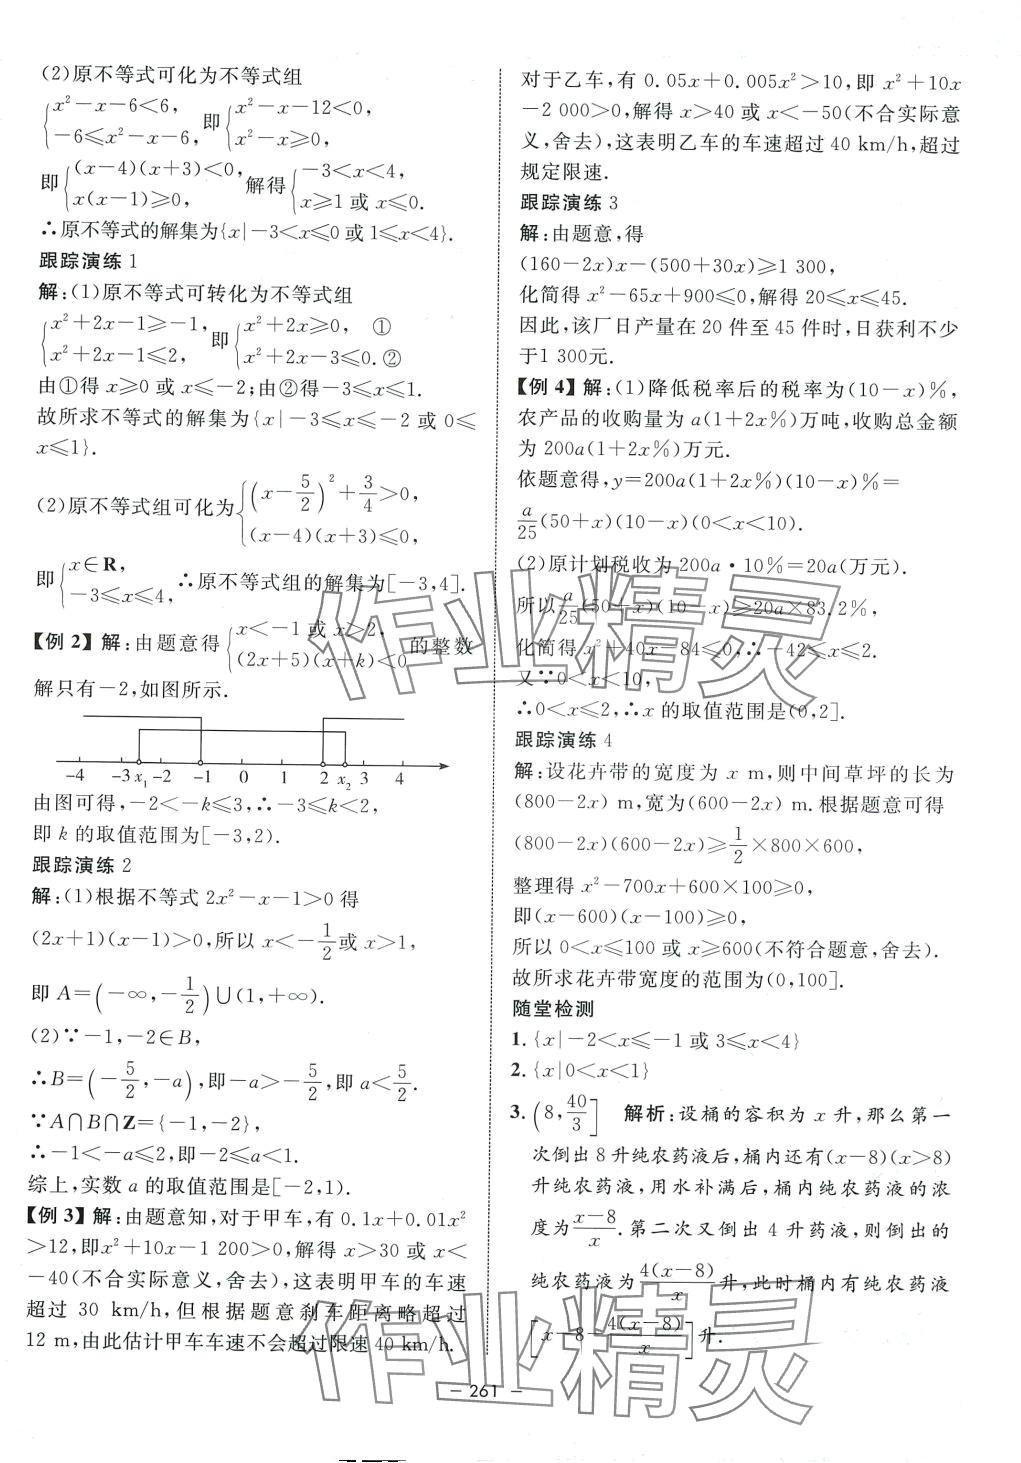 (2)原不等式可化为不等式组
{x²-x-6<6, -6≤x²-x-6, 即{x²-x-12<0, x²-x≥0,
即{(x-4)(x+3)<0, x(x-1)≥0, 解得{-3<x<4, x≥1 或 x≤0.
∴原不等式的解集为{x|-3<x≤0 或 1≤x<4}.
跟踪演练 1
解:(1)原不等式可转化为不等式组
{x²+2x-1≥-1, x²+2x-1≤2, 即{x²+2x≥0, ① x²+2x-3≤0. ②
由①得 x≥0 或 x≤-2;由②得-3≤x≤1.
故所求不等式的解集为{x|-3≤x≤-2 或 0≤
x≤1}.
(2)原不等式组可化为{(x-5/2)²+3/4>0, (x-4)(x+3)≤0,
即{x∈R, -3≤x≤4, ∴原不等式组的解集为[-3,4].
【例 2】解:由题意得{x<-1 或 x>2, (2x+5)(x+k)<0 的整数
解只有-2,如图所示.
-4 -3 x₁ -2 -1 0 1 2 x₂ 3 4
由图可得,-2<-k≤3,∴-3≤k<2,
即 k 的取值范围为[-3,2).
跟踪演练 2
解:(1)根据不等式 2x²-x-1>0 得
(2x+1)(x-1)>0,所以 x<-1/2 或 x>1,
即 A=(-∞,-1/2)∪(1,+∞).
(2)∵-1,-2∈B,
∴B=(-5/2,-a),即-a>-5/2,即 a<5/2.
∵A∩B∩Z={-1,-2},
∴-1<-a≤2,即-2≤a<1.
综上,实数 a 的取值范围是[-2,1).
【例 3】解:由题意知,对于甲车,有 0.1x+0.01x²
>12,即x²+10x-1 200>0,解得 x>30 或 x<
-40(不合实际意义,舍去),这表明甲车的车速
超过 30 km/h,但根据题意刹车距离略超过
12 m,由此估计甲车车速不会超过限速 40 km/h.
对于乙车,有 0.05x+0.005x²>10,即 x²+10x
-2 000>0,解得 x>40 或 x<-50(不合实际意
义,舍去),这表明乙车的车速超过 40 km/h,超过
规定限速.
跟踪演练 3
解:由题意,得
(160-2x)x-(500+30x)≥1 300,
化简得 x²-65x+900≤0,解得 20≤x≤45.
因此,该厂日产量在 20 件至 45 件时,日获利不少
于1 300元.
【例 4】解:(1)降低税率后的税率为(10-x)%,
农产品的收购量为 a(1+2x%)万吨,收购总金额
为 200a(1+2x%)万元.
依题意得,y=200a(1+2x%)(10-x)%=
a/25(50+x)(10-x)(0<x<10).
(2)原计划税收为 200a·10%=20a(万元).
所以 a/25(50+x)(10-x)≥20a×83.2%,
化简得 x²+40x-84≤0,∴-42≤x≤2.
又∵0<x<10,
∴0<x≤2,∴x 的取值范围是(0,2].
跟踪演练 4
解:设花卉带的宽度为 x m,则中间草坪的长为
(800-2x) m,宽为(600-2x) m.根据题意可得
(800-2x)(600-2x)≥1/2×800×600,
整理得 x²-700x+600×100≥0,
即(x-600)(x-100)≥0,
所以 0<x≤100 或 x≥600(不符合题意,舍去).
故所求花卉带宽度的范围为(0,100].
随堂检测
1. {x|-2<x≤-1 或 3≤x<4}
2. {x|0<x<1}
3. (8,40/3] 解析:设桶的容积为 x 升,那么第一
次倒出 8 升纯农药液后,桶内还有(x-8)(x>8)
升纯农药液,用水补满后,桶内纯农药液的浓
度为(x-8)/x.第二次又倒出 4 升药液,则倒出的
纯农药液为 4(x-8)/x 升,此时桶内有纯农药液
[x-8-4(x-8)/x]升.
— 261 —
作业精灵
作业精灵